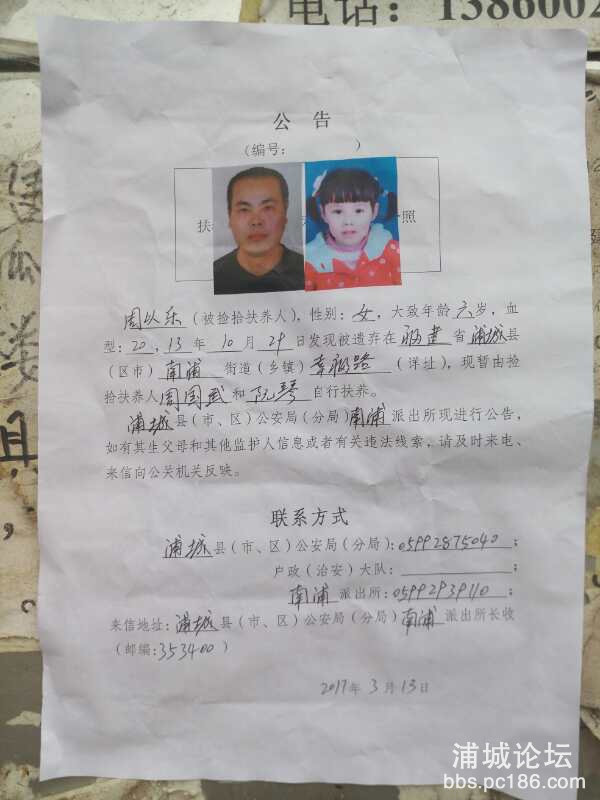 电话：1386002
公 告
（编号： ）
扶 照
周以乐（被捡拾扶养人），性别：女，大致年龄六岁，血
型：20，13年10月29日发现被遗弃在福建省浦城县
（区市）南浦 街道（乡镇）幸福路（详址），现暂由捡
拾扶养人周国武和阮琴自行扶养。
浦城县（市、区）公安局（分局）南浦派出所现进行公告，
如有其生父母和其他监护人信息或者有关违法线索，请及时来电、
来信向公关机关反映。
联系方式
浦城县（市、区）公安局（分局）：05992875040；
户政（治安）大队： ；
南浦派出所：05992939110；
来信地址：浦城县（市、区）公安局（分局）南浦派出所长收
（邮编：353400）
2017年3月13日
浦城论坛
bbs.pc186.com